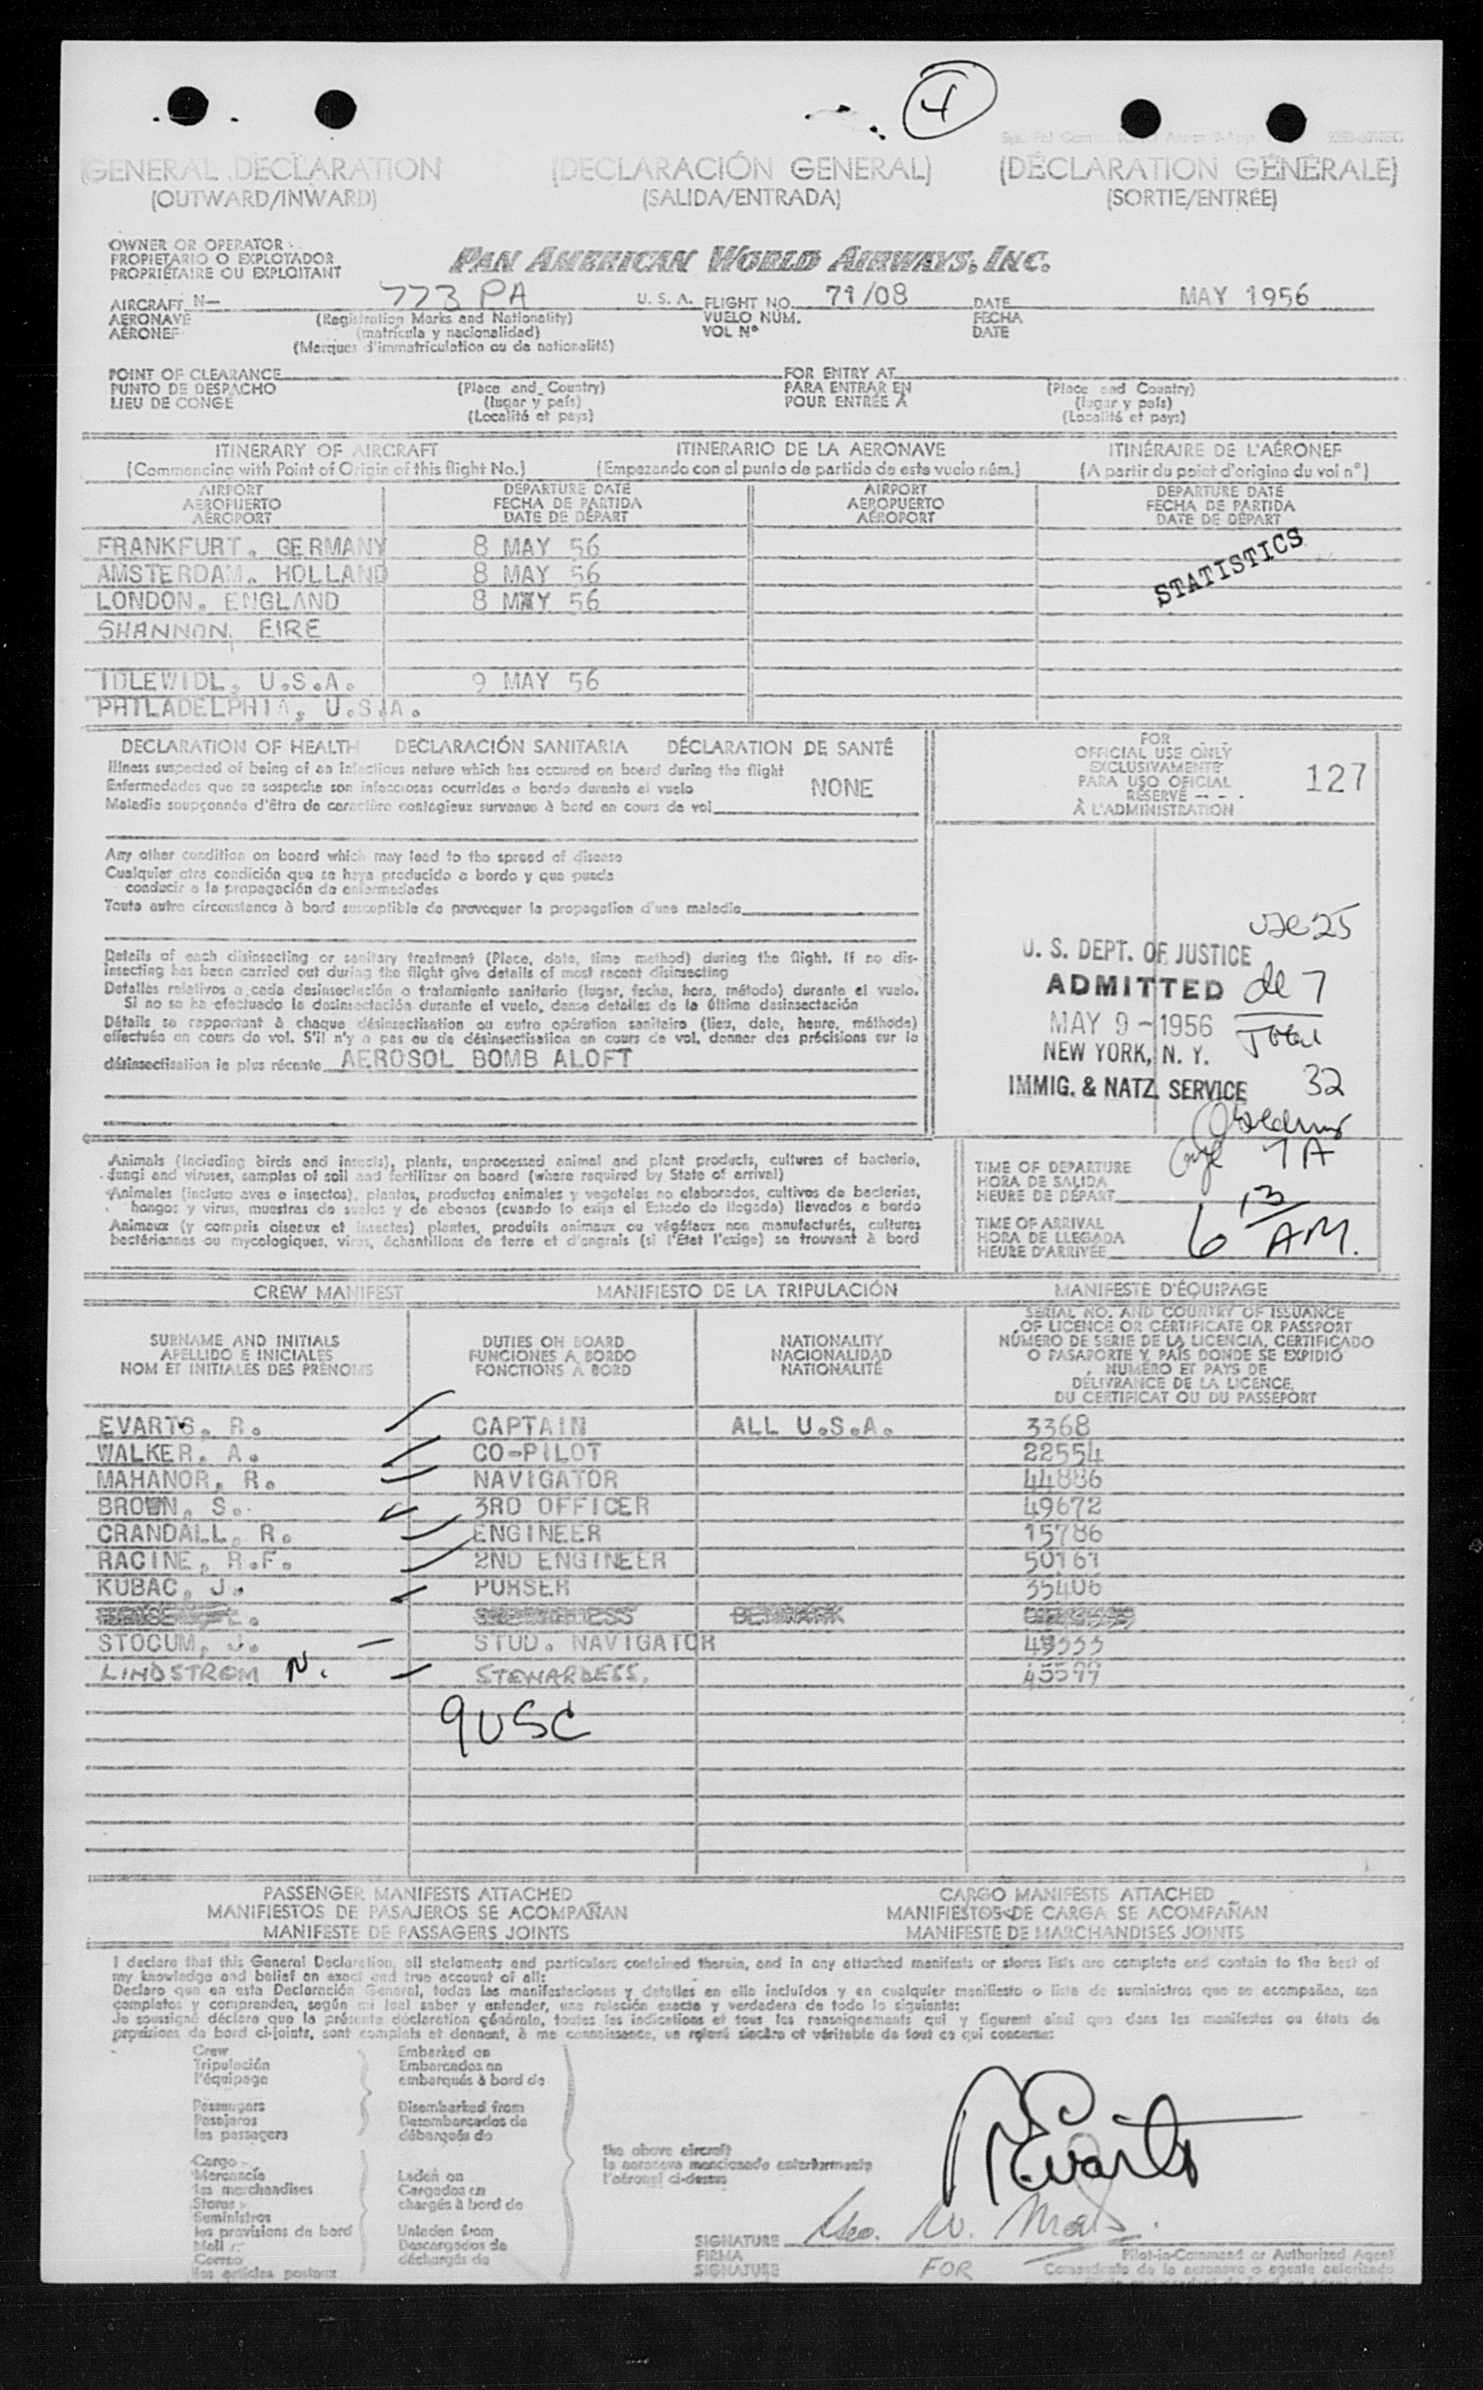 4
(GENERAL DECLARATION (DECLARACIÓN GENERAL) (DÉCLARATION GÉNÉRALE)
(OUTWARD/INWARD) (SALIDA/ENTRADA) (SORTIE/ENTRÉE)
OWNER OR OPERATOR
PROPIETARIO O EXPLOTADOR
PROPRIÉTAIRE OU EXPLOITANT
PAN AMERICAN WORLD AIRWAYS, INC.
AIRCRAFT N— 773 PA U.S.A. FLIGHT NO. 71/08 DATE MAY 1956
AERONAVE (Registration Marks and Nationality) VUELO NÚM. FECHA
AÉRONEF (matrícula y nacionalidad) VOL Nº DATE
(Marques d'immatriculation ou de nationalité)
POINT OF CLEARANCE FOR ENTRY AT
PUNTO DE DESPACHO (Place and Country) PARA ENTRAR EN (Place and Country)
LIEU DE CONGÉ (lugar y país) POUR ENTRÉE A (lugar y país)
(Localité et pays) (Localité et pays)
ITINERARY OF AIRCRAFT ITINERARIO DE LA AERONAVE ITINÉRAIRE DE L'AÉRONEF
(Commencing with Point of Origin of this flight No.) (Empezando con el punto de partida de este vuelo núm.) (A partir du point d'origine du vol nº)
AIRPORT DEPARTURE DATE AIRPORT DEPARTURE DATE
AEROPUERTO FECHA DE PARTIDA AEROPUERTO FECHA DE PARTIDA
AÉROPORT DATE DE DÉPART AÉROPORT DATE DE DÉPART
FRANKFURT, GERMANY 8 MAY 56
STATISTICS
AMSTERDAM, HOLLAND 8 MAY 56
LONDON, ENGLAND 8 MAY 56
SHANNON, EIRE
IDLEWIDL, U.S.A. 9 MAY 56
PHILADELPHIA, U.S.A.
DECLARATION OF HEALTH DECLARACIÓN SANITARIA DÉCLARATION DE SANTÉ
Illness suspected of being of an infectious nature which has occured on board during the flight
Enfermedades que se sospeche son infecciosas ocurridas a bordo durante el vuelo NONE
Maladie soupçonnée d'être de caractère contagieux survenue à bord en cours de vol
FOR
OFFICIAL USE ONLY
EXCLUSIVAMENTE
PARA USO OFICIAL
RÉSERVÉ
À L'ADMINISTRATION
127
Any other condition on board which may lead to the spread of disease
Cualquier otra condición que se haya producido a bordo y que pueda
conducir a la propagación de enfermedades
Toute autre circonstance à bord susceptible de provoquer la propagation d'une maladie
Details of each disinsecting or sanitary treatment (Place, date, time method) during the flight. If no dis-
insecting has been carried out during the flight give details of most recent disinsecting
Detalles relativos a cada desinsectación o tratamiento sanitario (lugar, fecha, hora, método) durante el vuelo.
Si no se ha efectuado la desinsectación durante el vuelo, dense detalles de la última desinsectación
Détails se rapportant à chaque désinsectisation ou autre opération sanitaire (lieu, date, heure, méthode)
effectuée en cours de vol. S'il n'y a pas eu de désinsectisation en cours de vol, donner des précisions sur la
désinsectisation la plus récente AEROSOL BOMB ALOFT
25
U. S. DEPT. OF JUSTICE
ADMITTED 7
MAY 9 - 1956 Total
NEW YORK, N. Y.
IMMIG. & NATZ. SERVICE 32
7A
Animals (including birds and insects), plants, unprocessed animal and plant products, cultures of bacteria,
fungi and viruses, samples of soil and fertilizer on board (where required by State of arrival)
Animales (incluso aves e insectos), plantas, productos animales y vegetales no elaborados, cultivos de bacterias,
hongos y virus, muestras de suelos y de abonos (cuando lo exija el Estado de llegada) llevados a bordo
Animaux (y compris oiseaux et insectes) plantes, produits animaux ou végétaux non manufacturés, cultures
bactériennes ou mycologiques, virus, échantillons de terre et d'engrais (si l'État l'exige) se trouvant à bord
TIME OF DEPARTURE
HORA DE SALIDA
HEURE DE DÉPART
TIME OF ARRIVAL
HORA DE LLEGADA
HEURE D'ARRIVÉE
6 13 AM.
CREW MANIFEST MANIFIESTO DE LA TRIPULACIÓN MANIFESTE D'ÉQUIPAGE
SURNAME AND INITIALS
APELLIDO E INICIALES
NOM ET INITIALES DES PRÉNOMS
DUTIES ON BOARD
FUNCIONES A BORDO
FONCTIONS À BORD
NATIONALITY
NACIONALIDAD
NATIONALITÉ
SERIAL NO. AND COUNTRY OF ISSUANCE
OF LICENCE OR CERTIFICATE OR PASSPORT
NÚMERO DE SERIE DE LA LICENCIA, CERTIFICADO
O PASAPORTE Y PAÍS DONDE SE EXPIDIÓ
NUMÉRO ET PAYS DE
DÉLIVRANCE DE LA LICENCE,
DU CERTIFICAT OU DU PASSEPORT
EVARTS, R. CAPTAIN ALL U.S.A. 3368
WALKER, A. CO-PILOT 22554
MAHANOR, R. NAVIGATOR 44886
BROWN, S. 3RD OFFICER 49672
CRANDALL, R. ENGINEER 15786
RACINE, R.F. 2ND ENGINEER 50167
KUBAC, J. PURSER 35406
STOCUM, J. STUD. NAVIGATOR
LINDSTROM N. STEWARDESS.
9USC
PASSENGER MANIFESTS ATTACHED CARGO MANIFESTS ATTACHED
MANIFIESTOS DE PASAJEROS SE ACOMPAÑAN MANIFIESTOS DE CARGA SE ACOMPAÑAN
MANIFESTE DE PASSAGERS JOINTS MANIFESTE DE MARCHANDISES JOINTS
I declare that this General Declaration, all statements and particulars contained therein, and in any attached manifests or stores lists are complete and contain to the best of
my knowledge and belief an exact and true account of all:
Declaro que en esta Declaración General, todas las manifestaciones y detalles en ella incluídos y en cualquier manifiesto o lista de suministros que se acompañan, son
completos y comprenden, según mi leal saber y entender, una relación exacta y verdadera de todo lo siguiente:
Je soussigné déclare que la présente déclaration générale, toutes les indications et tous les renseignements qui y figurent ainsi que dans les manifestes ou états de
provisions de bord ci-joints, sont complets et donnent, à ma connaissance, un relevé sincère et véritable de tout ce qui concerne:
Crew Embarked on
Tripulación Embarcados en
l'équipage embarqués à bord de
Passengers Disembarked from
Pasajeros Desembarcados de
les passagers débarqués de
the above aircraft
la aeronave mencionada anteriormente
l'aéronef ci-dessus
Cargo
Mercancía Laden on
les marchandises Cargados en
Stores chargés à bord de
Suministros
les provisions de bord Unladen from
Mail Descargados de
Correo déchargés de
les articles postaux
REvarts
SIGNATURE Geo. W.
FIRMA Pilot-in-Command or Authorized Agent
SIGNATURE FOR Comandante de la aeronave o agente autorizado